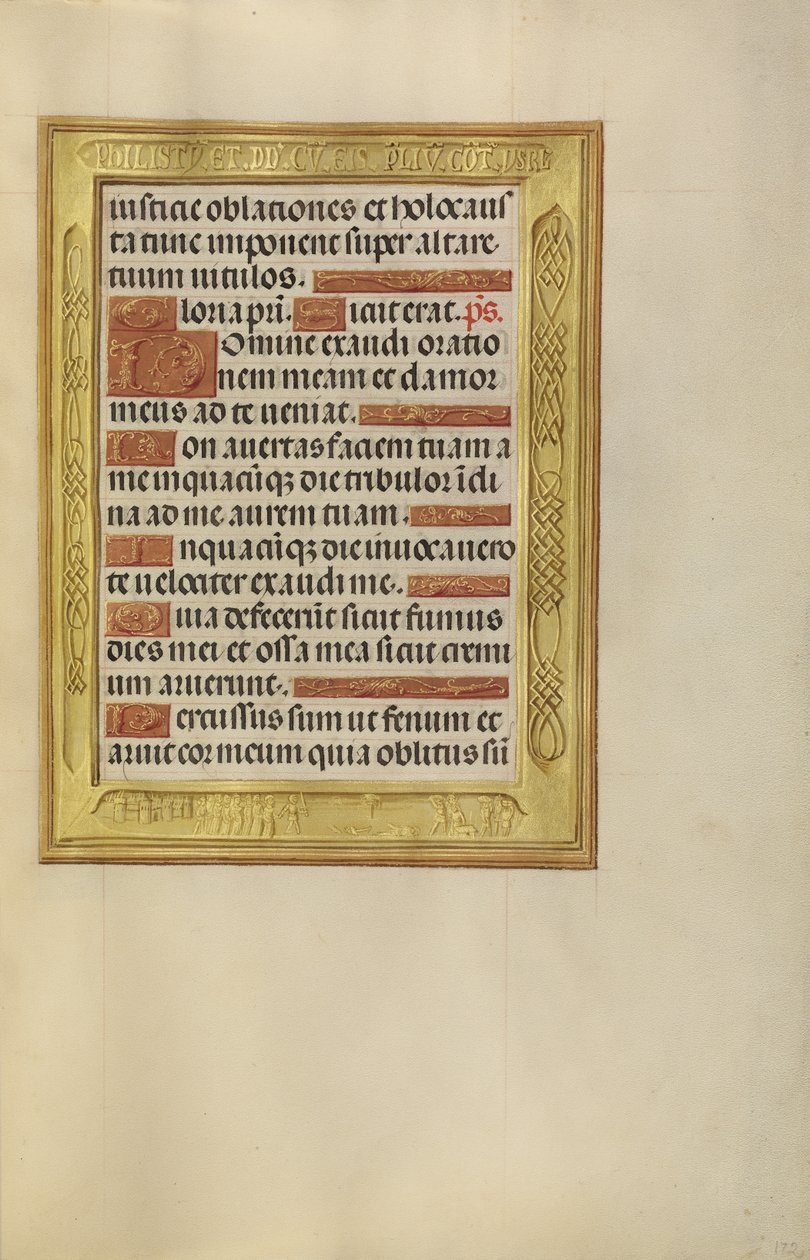 iusticie oblationes et holocaus
ta tunc imponent super altare
tuum uitulos.
Gloria pri̅. Sicut erat. ps̅.
Domine exaudi oratio
nem meam et clamor
meus ad te ueniat.
Non auertas faciem tuam a
me inquacu̅qꝫ die tribulor i̅cli
na ad me aurem tuam.
Inquacu̅qꝫ die inuocauero
te uelociter exaudi me.
Quia defeceru̅t sicut fumus
dies mei et ossa mea sicut cremi
um aruerunt.
Percussus sum ut fenum et
aruit cor meum quia oblitus su̅